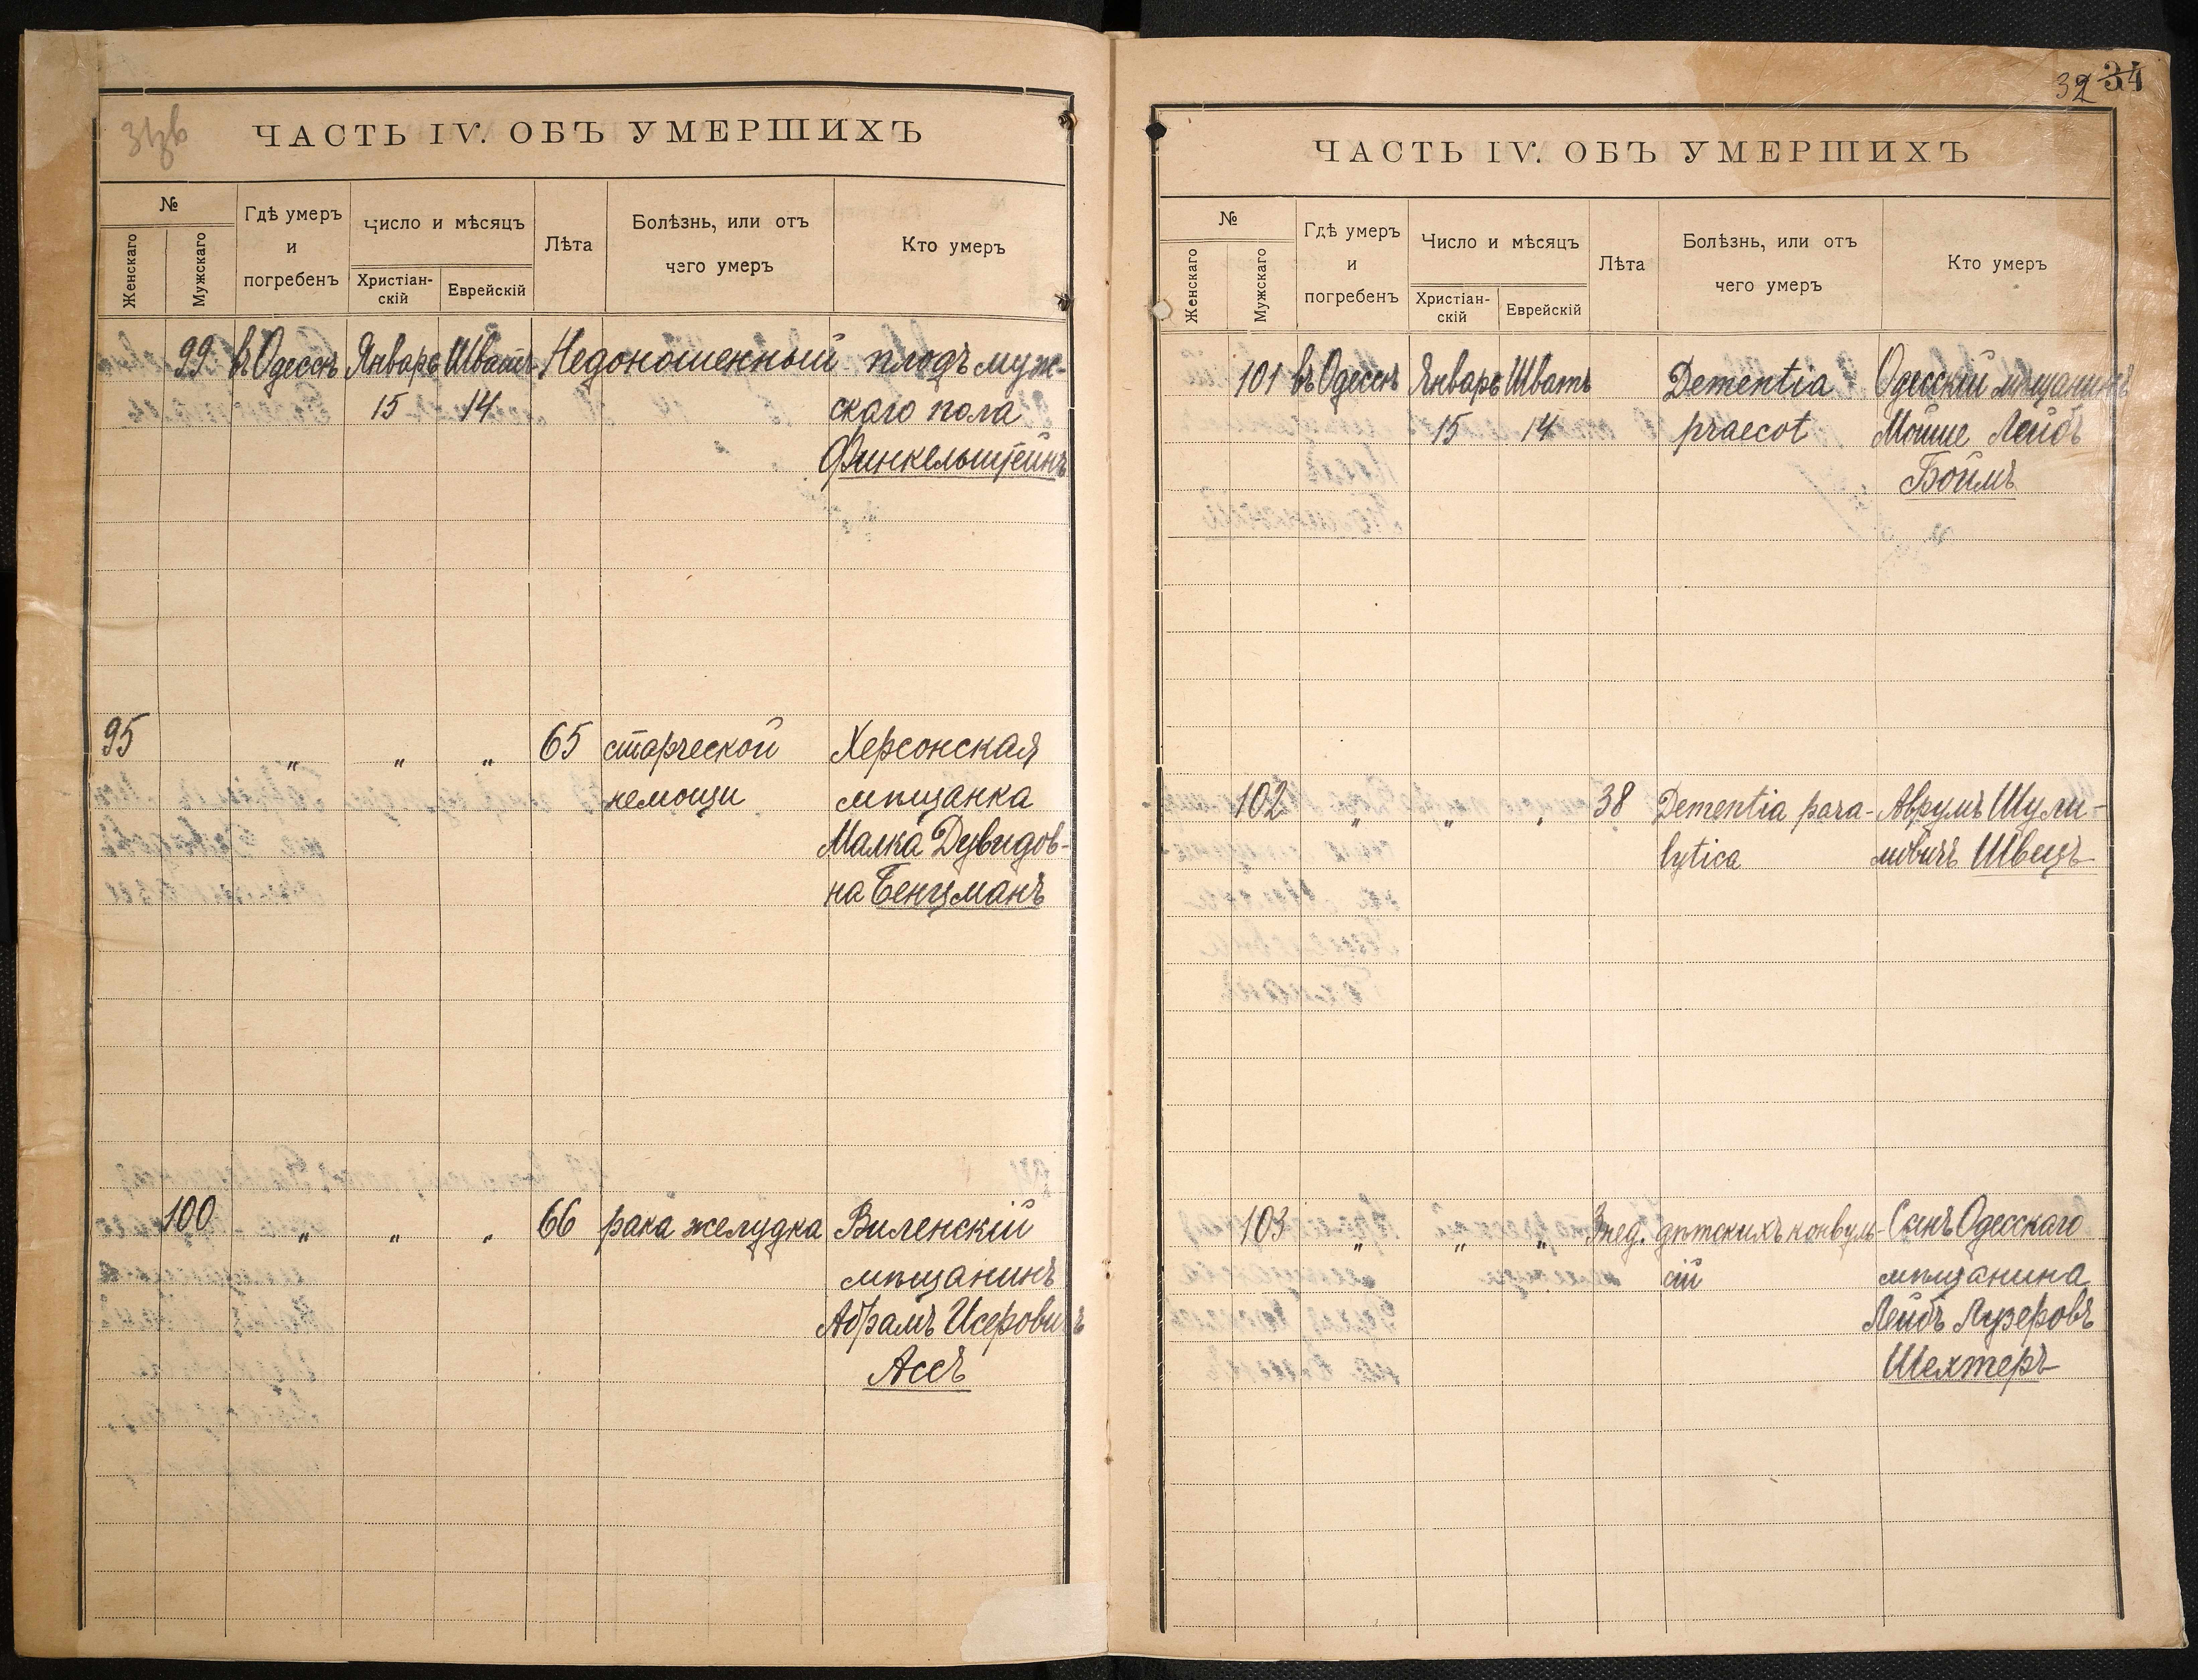 ЧАСТЬ IV. ОБЪ УМЕРШИХЪ
№
Женскаго
Мужскаго
Гдѣ умеръ
и
погребенъ
Число и мѣсяцъ
Христіан-
скій
Еврейскій
Лѣта
Болѣзнь, или отъ
чего умеръ
Кто умеръ
99 въ Одессѣ Январь Шватъ Недоношенный плодъ муж-
15 14 скаго пола
Финкельштейнъ
95 „ „ „ 65 старческой Херсонская
немощи мѣщанка
Малка Дувидов-
на Бенцманъ
100 „ „ „ 66 рака желудка Виленскій
мѣщанинъ
Абрамъ Исеровичъ
Ассъ
32 34
ЧАСТЬ IV. ОБЪ УМЕРШИХЪ
№
Женскаго
Мужскаго
Гдѣ умеръ
и
погребенъ
Число и мѣсяцъ
Христіан-
скій
Еврейскій
Лѣта
Болѣзнь, или отъ
чего умеръ
Кто умеръ
101 въ Одессѣ Январь Шватъ Dementia Одесскій мѣщанинъ
15 14 praecot Мошие Лейбъ
Боймъ
102 „ „ „ 38 Dementia para- Аврумъ Шули-
lytica мовичъ Швецъ
103 „ „ „ 3 нед. дѣтскихъ конвуль- Сынъ Одесскаго
сій мѣщанина
Лейбъ Лузеровъ
Шехтеръ